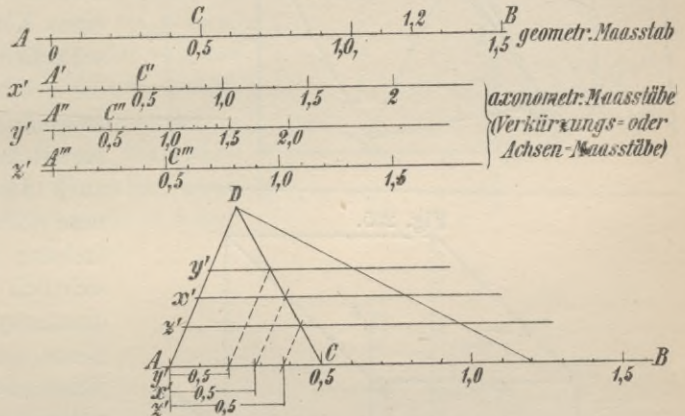 C 1,2 B
A 0 0,5 1,0, 1,5 geometr. Maasstab
x' A' C' 0,5 1,0 1,5 2
y' A'' C''' 0,5 1,0 1,5 2,0
z' A''' C''' 0,5 1,0 1,5
axonometr. Maasstäbe
(Verkürzungs= oder
Achsen-Maasstäbe)
D
y'
x'
z'
A C B
0,5 1,0 1,5
y' 0,5
x' 0,5
z' 0,5